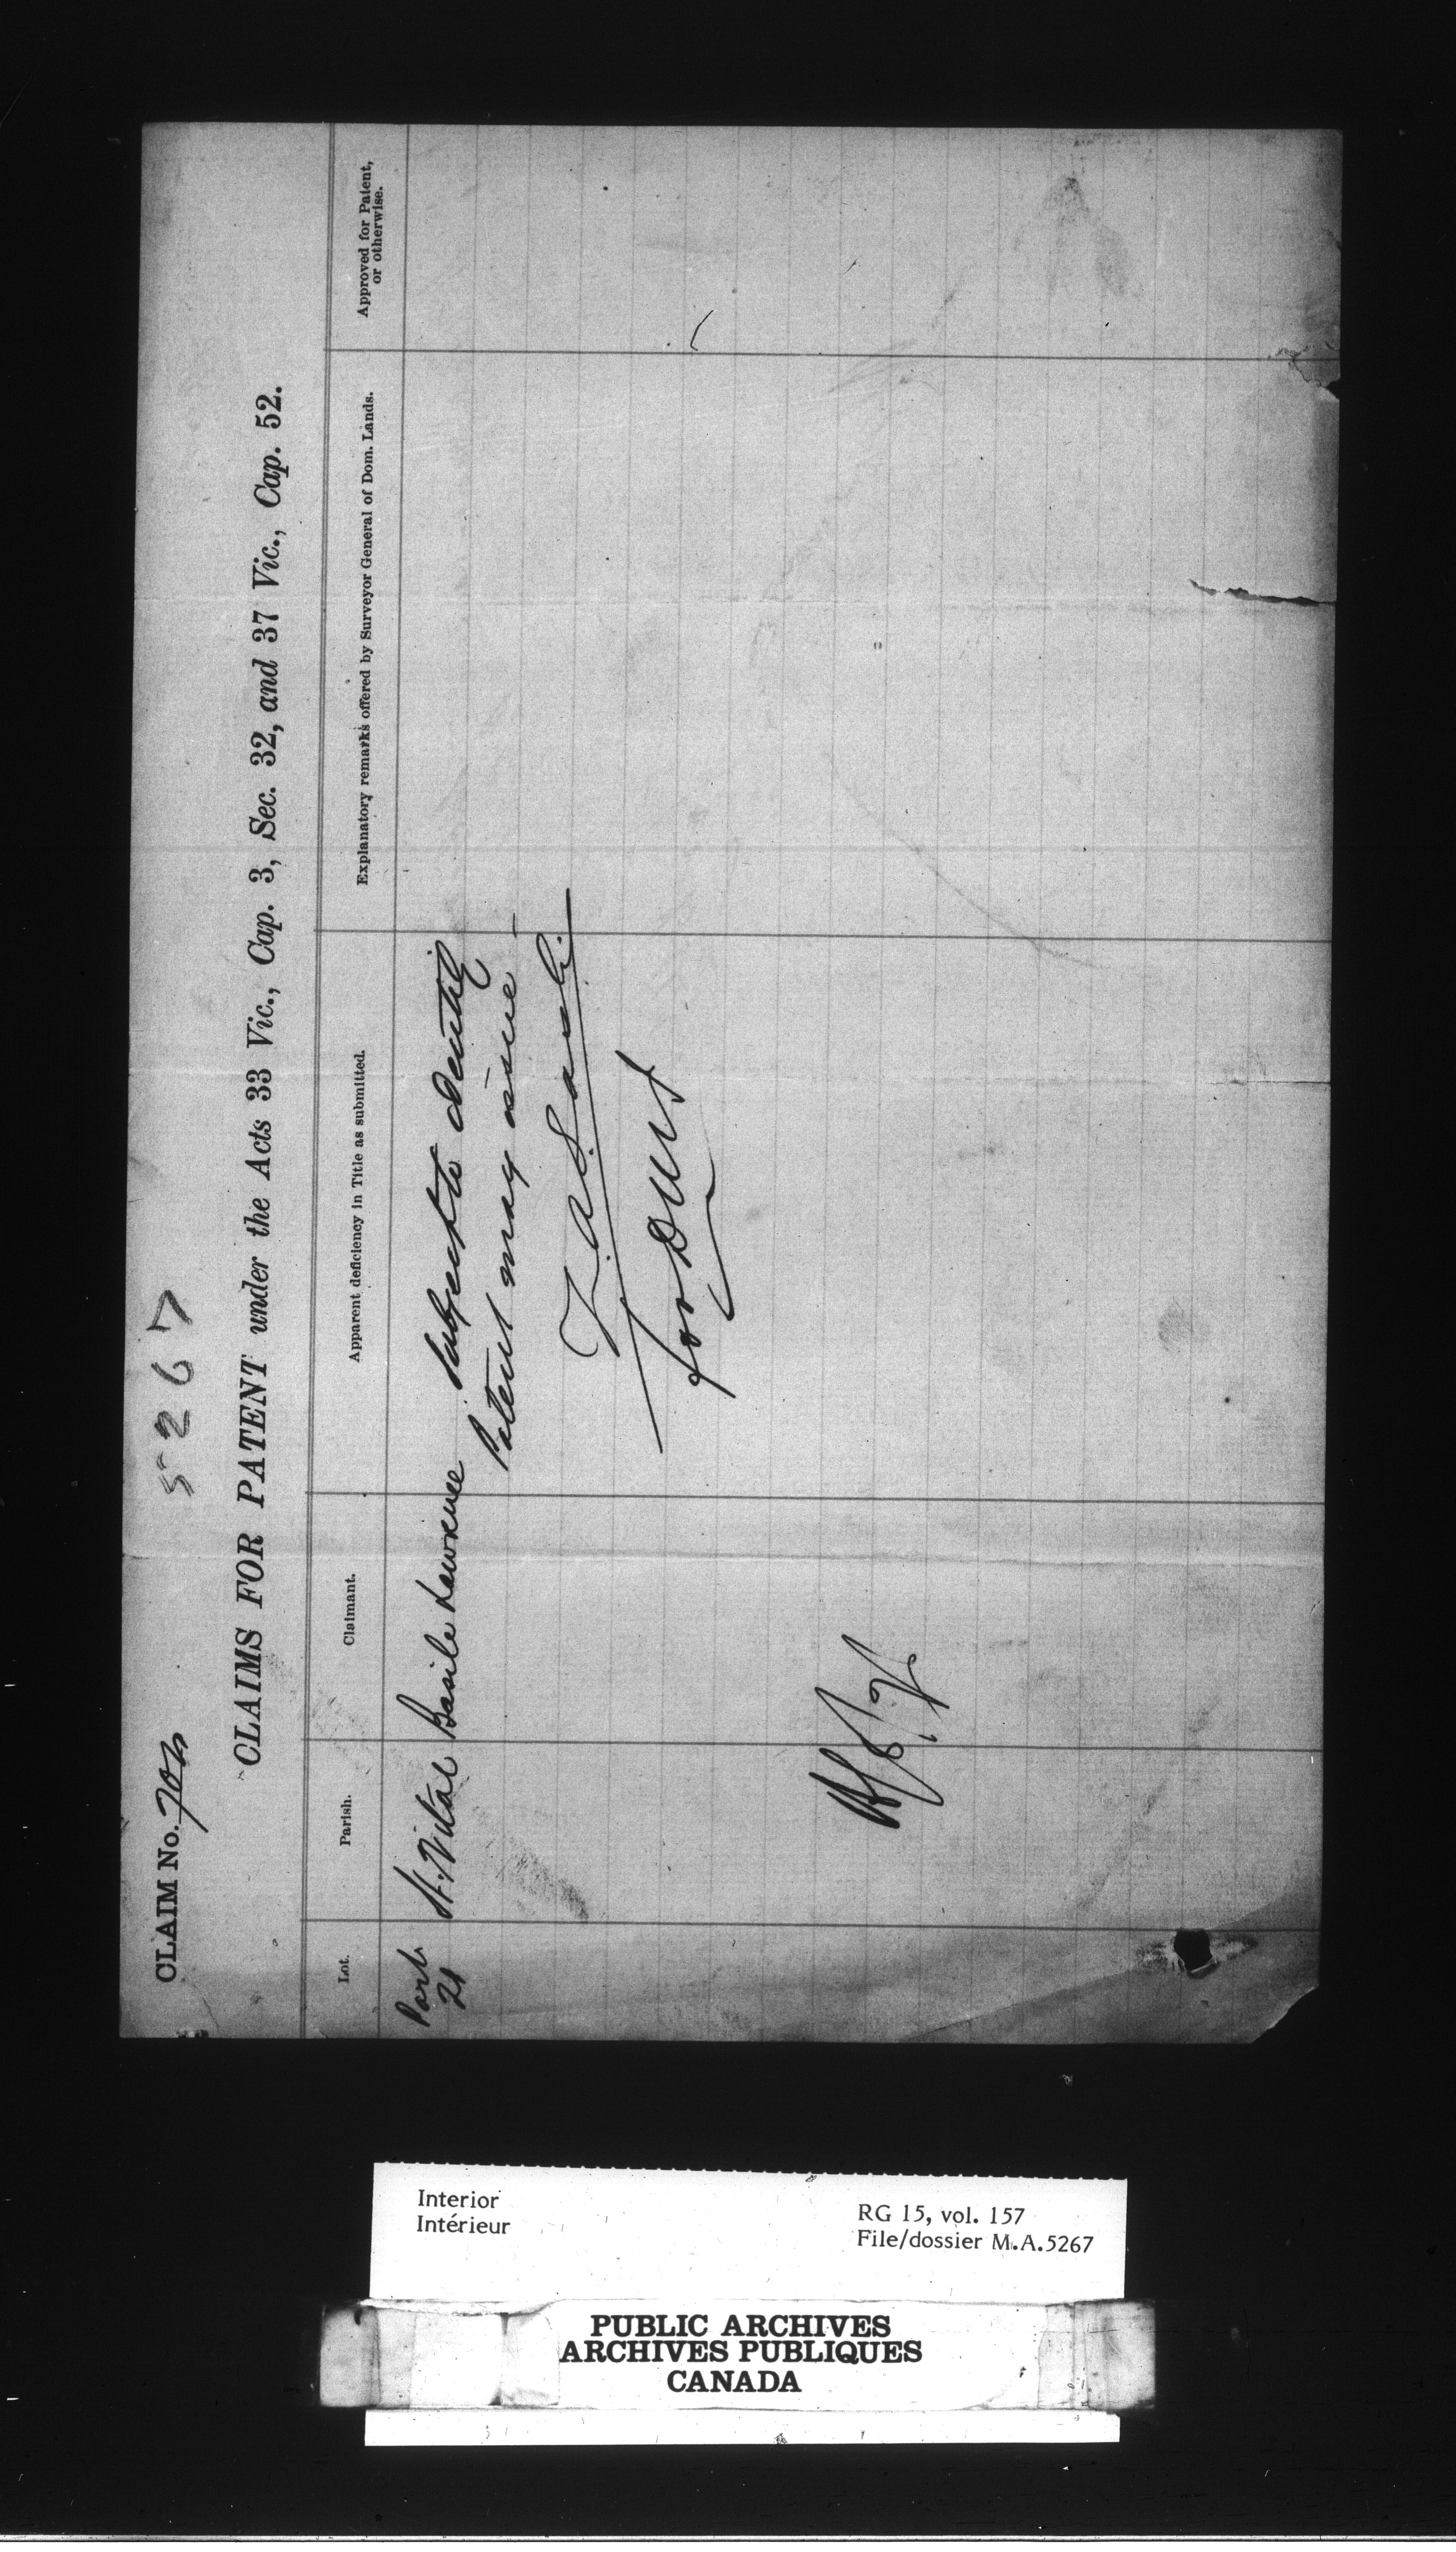 CLAIM No.
5267
CLAIMS FOR PATENT under the Acts 33 Vic., Cap. 3, Sec. 32, and 37 Vic., Cap. 52.
Lot.
Parish.
Claimant.
Apparent deficiency in Title as submitted.
Explanatory remarks offered by Surveyor General of Dom. Lands.
Approved for Patent,
or otherwise.
Part
21
St. Vital
Basile Lawrence
Subject to identity
Patent may issue —
for
Interior
Intérieur
RG 15, vol. 157
File/dossier M.A.5267
PUBLIC ARCHIVES
ARCHIVES PUBLIQUES
CANADA